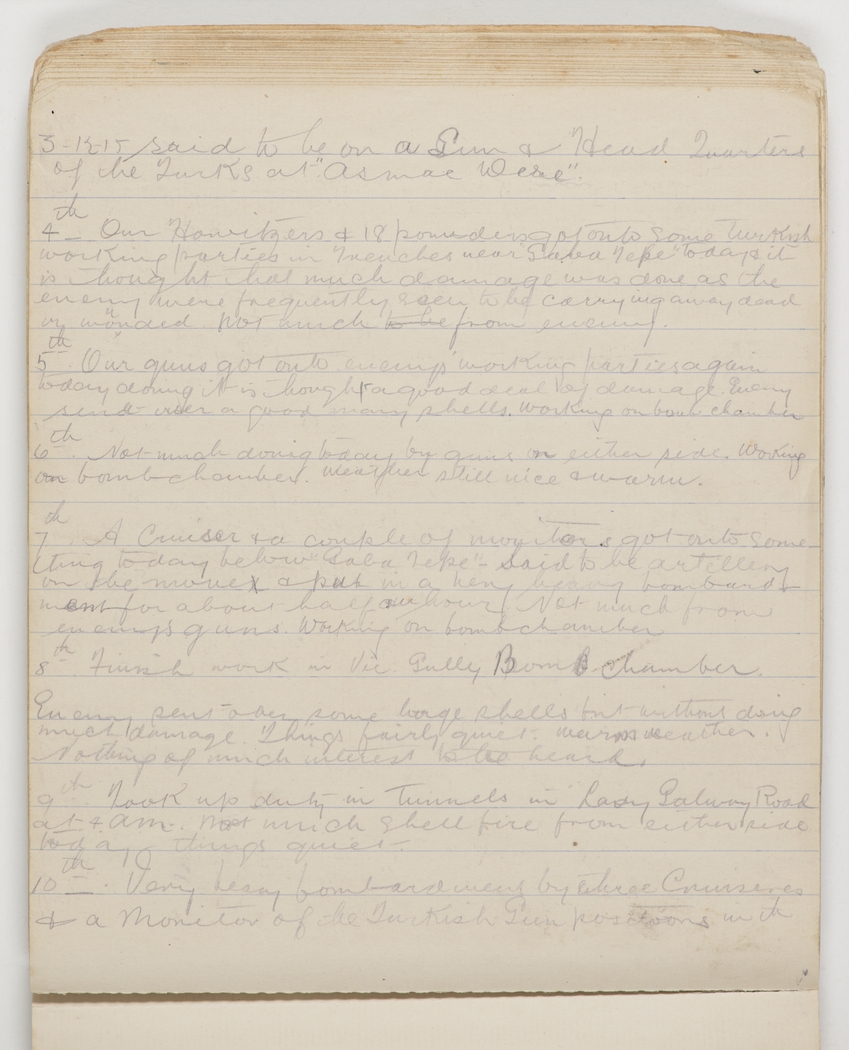 3-12-15 said to be on a Gun & Head Quarters
of the Turks at "Asmac Dere".
4th Our Howitzers & 18 pounders got onto some Turkish
working parties in trenches near "Gaba Tepe" today & it
is thought that much damage was done as the
enemy were frequently seen to be carrying away dead
or wounded. Not much to be from enemy.
5th. Our guns got onto enemys' working parties again
today doing it is thought a good deal of damage. Enemy
send over a good many shells. Working on bomb chamber
6th. Not much doing today by guns on either side. Working
on bomb chamber. Weather still nice & warm.
7th. A Cruiser & a couple of monitors got onto some-
thing today below "Gaba Tepe" - Said to be artillery
on the move & put in a very heavy bombard-
ment for about half an hour. Not much from
enemys guns. Working on bomb chamber
8th. Finish work in Vic. Gully Bomb chamber.
Enemy sent over some large shells but without doing
much damage. Things fairly quiet. warm weather.
Nothing of much interest to be heard.
9th. Took up duty in Tunnels in Lady Galway Road
at 4 am. Not much shell fire from either side
today things quiet.
10th. Very heavy bombardment by three Cruisers
& a Monitor of the Turkish Gun positions in th